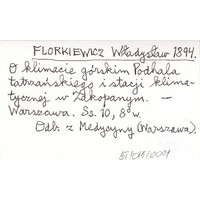 FLORKIEWICZ Władysław 1894.
O klimacie górskim Podhala
tatrzańskiego i stacji klima-
tycznej w Zakopanym. —
Warszawa. Ss. 10, 8w.
Odb. z Medycyny (Warszawa).